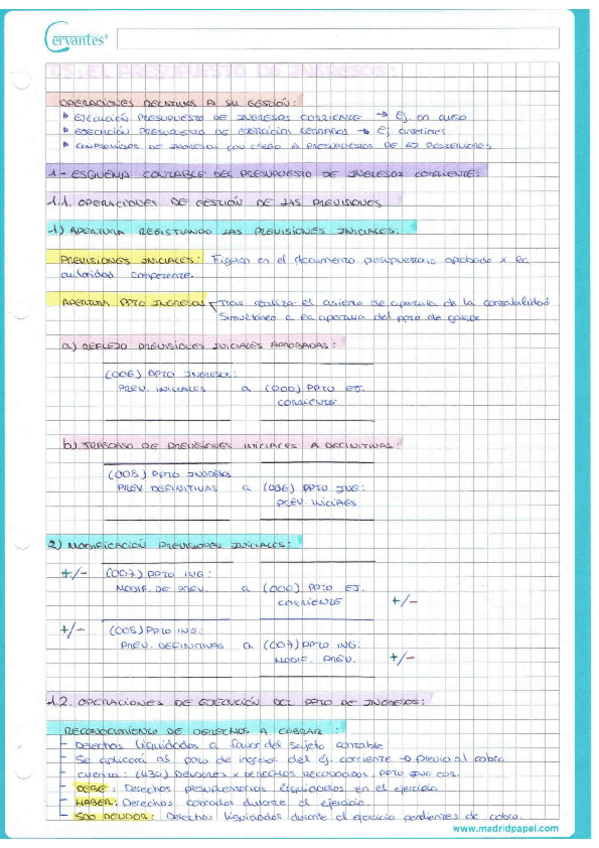 Cervantes
T.5: EL PRESUPUESTO DE INGRESOS:
OPERACIONES RELATIVAS A SU GESTIÓN:
EJECUCIÓN PRESUPUESTO DE INGRESOS CORRIENTE → Ej. en curso
EJECUCIÓN PRESUPUESTO DE EJERCICIOS CERRADOS → Ej anteriores
COMPROMISOS DE INGRESOS CON CARGO A PRESUPUESTOS DE EJ POSTERIORES
1- ESQUEMA CONTABLE DEL PRESUPUESTO DE INGRESOS CORRIENTE:
1.1. OPERACIONES DE GESTIÓN DE LAS PREVISIONES
1) APERTURA REGISTRANDO LAS PREVISIONES INICIALES:
PREVISIONES INICIALES: Figuran en el documento presupuestario aprobado x la
autoridad competente.
APERTURA PPTO INGRESOS Tras realizar el asiento de apertura de la contabilidad
Simultáneo a la apertura del ppto de gastos
a) REFLEJO PREVISIONES INICIALES APROBADAS:
(006) PPTO INGRESOS:
PREV. INICIALES a (000) PPTO EJ.
CORRIENTE
b) TRASPASO DE PREVISIONES INICIALES A DEFINITIVAS:
(008) PPTO INGRESOS
PREV DEFINITIVAS a (006) PPTO ING:
PREV. INICIALES
2) MODIFICACIÓN PREVISIONES INICIALES:
+/- (007) PPTO ING:
MODIF. DE PREV. a (000) PPTO EJ.
CORRIENTE +/-
+/- (008) PPTO ING:
PREV. DEFINITIVAS a (007) PPTO ING:
MODIF. PREV. +/-
1.2. OPERACIONES DE EJECUCIÓN DEL PPTO DE INGRESOS:
RECONOCIMIENTO DE DERECHOS A COBRAR:
- Derechos liquidados a favor del sujeto contable
- Se aplicará al ppto de ingresos del ej. corriente → previo al cobro
- cuenta: (430) DEUDORES x DERECHOS RECONOCIDOS, PPTO ING COR.
- DEBE: Derechos presupuestarios liquidados en el ejercicio
- HABER: Derechos cobrados durante el ejercicio.
- SDO DEUDOR: Derechos liquidados durante el ejercicio pendientes de cobro.
www.madridpapel.com